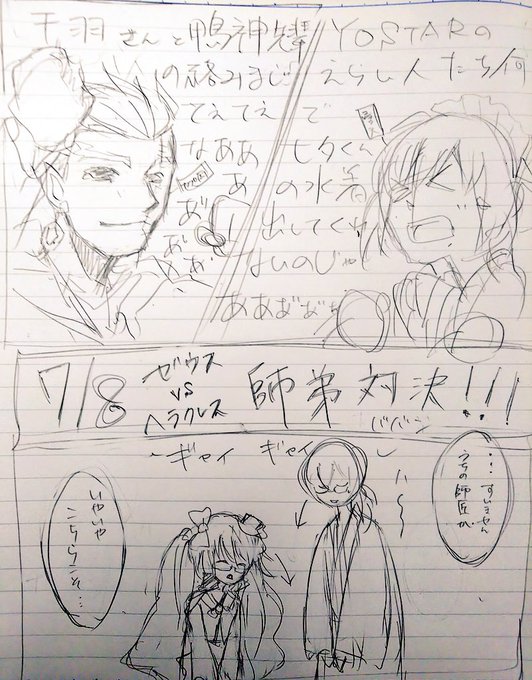 千羽さんと鴨神先輩
の絡みまじ
てぇてぇ
なああ
あ
あ゛
あ゛
あ゛
YOSTARの
えらい人たち何
で
七夕くん
の水着
出してくれ
ないのじゃ
あああ゛あ゛
7/8
ゼウス
vs
ヘラクレス
師弟対決!!!
ババン
ギャイ
ギャイ
…すいません
うちの師匠が
いやいや
こちらこそ…